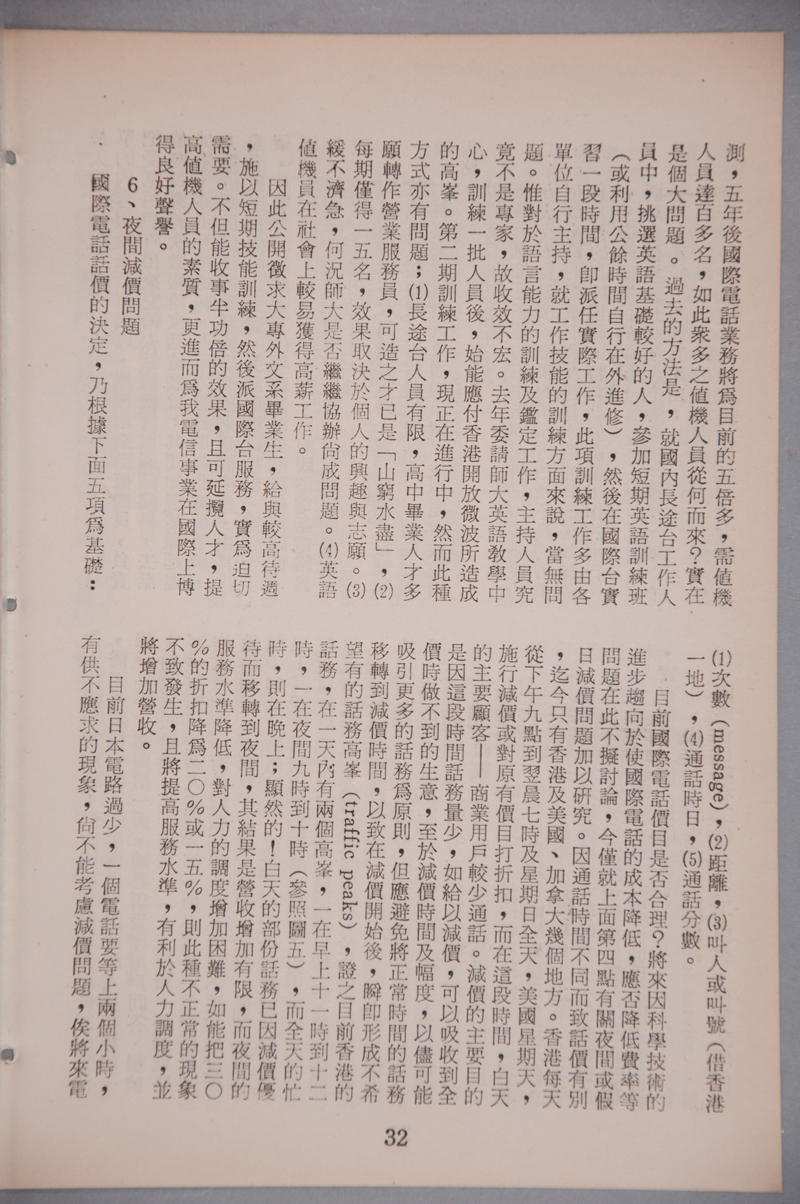 測，五年後國際電話業務將爲目前的五倍多，需值機
人員達百多名，如此衆多之值機人員從何而來？實在
是個大問題。過去的方法是，就國內長途台工作人
員中，挑選英語基礎較好的人，參加短期英語訓練班
（或利用公餘時間自行在外進修），然後在國際台實
習一段時間，卽派任實際工作，此項訓練工作多由各
單位自行主持，就工作技能的訓練方面來說，當無問
題。惟對於語言能力的訓練及鑑定工作，主持人員究
竟不是專家，故收效不宏。去年委請師大英語教學中
心，訓練一批人員後，始能應付香港開放微波所造成
的高峯。第二期訓練工作，現正在進行中，然而此種
方式亦有問題；⑴長途台人員有限，高中畢業人才多
願轉作營業服務員，可造之才已是「山窮水盡」，⑵
每期僅得一五名，效果取決於個人的興趣與志願。⑶
緩不濟急，何況師大是否繼繼協辦尙成問題。⑷英語
値機員在社會上較易獲得高薪工作。
因此公開徵求大專外文系畢業生，給與較高待遇
，施以短期技能訓練，然後派國際台服務，實爲迫切
需要。不但能收事半功倍的效果，且可延攬人才，提
高値機人員的素質，更進而爲我電信事業在國際上博
得良好聲譽。
6、夜間減價問題
國際電話話價的決定，乃根據下面五項爲基礎：
⑴次數（message），⑵距離，⑶叫人或叫號（借香港
一地），⑷通話時日，⑸通話分數。
目前國際電話價目是否合理？將來因科學技術的
進步趨向於使國際電話的成本降低，應否降低費率等
問題在此不擬討論，今僅就上面第四點有關夜間或假
日減價問題加以研究。因通話時間不同而致話價有別
，迄今只有香港及美國、加拿大幾個地方。香港每天
從下午九點到翌晨七時及星期日全天，美國星期天，
施行減價或對原有價目打折扣，而在這段時間，白天
的主要顧客——商業用戶較少通話。減價的主要目的
是因這段時間話務量少，如給以減價，可以吸收到全
價時做不到的生意，至於減價時間及幅度，以儘可能
吸引更多的話務爲原則，但應避免將正常時間的話務
移轉到減價時間，以致在減價開始後，瞬卽形成不希
望有的話務高峯（traffic peaks），證之目前香港的
話務，在一天內有兩個高峯，一在早上十一時到十二
時，一在夜間九時到十時（參照圖五），而全天的忙
時，則在晚上；顯然的！白天的部份話務已因減價優
待而移轉到夜間，其結果是營收增加有限，而夜間的
服務水準降低，對人力的調度增加困難，如能把三〇
％的折扣降爲二〇％或一五％，則此種不正常的現象
不致發生，且將提高服務水準，有利於人力調度，並
將增加營收。
目前日本電路過少，一個電話要等上兩個小時，
有供不應求的現象，尙不能考慮減價問題，俟將來電
32